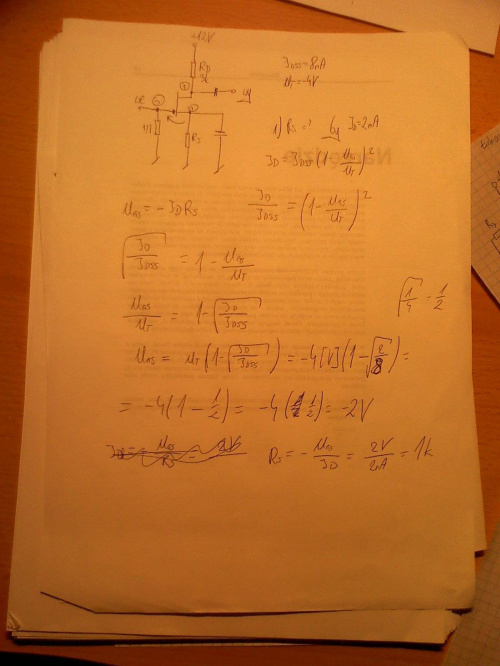 +12V
R_D
I_DSS = 8mA
U_T = -4V
1) R_S = ? by I_D = 2mA
I_D = I_DSS (1 - U_GS/U_T)²
R_S
U_GS = -I_D R_S
I_D/I_DSS = (1 - U_GS/U_T)²
√(I_D/I_DSS) = 1 - U_GS/U_T
U_GS/U_T = 1 - √(I_D/I_DSS)
√(1/4) = 1/2
U_GS = U_T (1 - √(I_D/I_DSS)) = -4[V] (1 - √(2/8)) =
= -4 (1 - 1/2) = -4 (1/2) = -2V
R_S = - U_GS/I_D = 2V/2mA = 1k